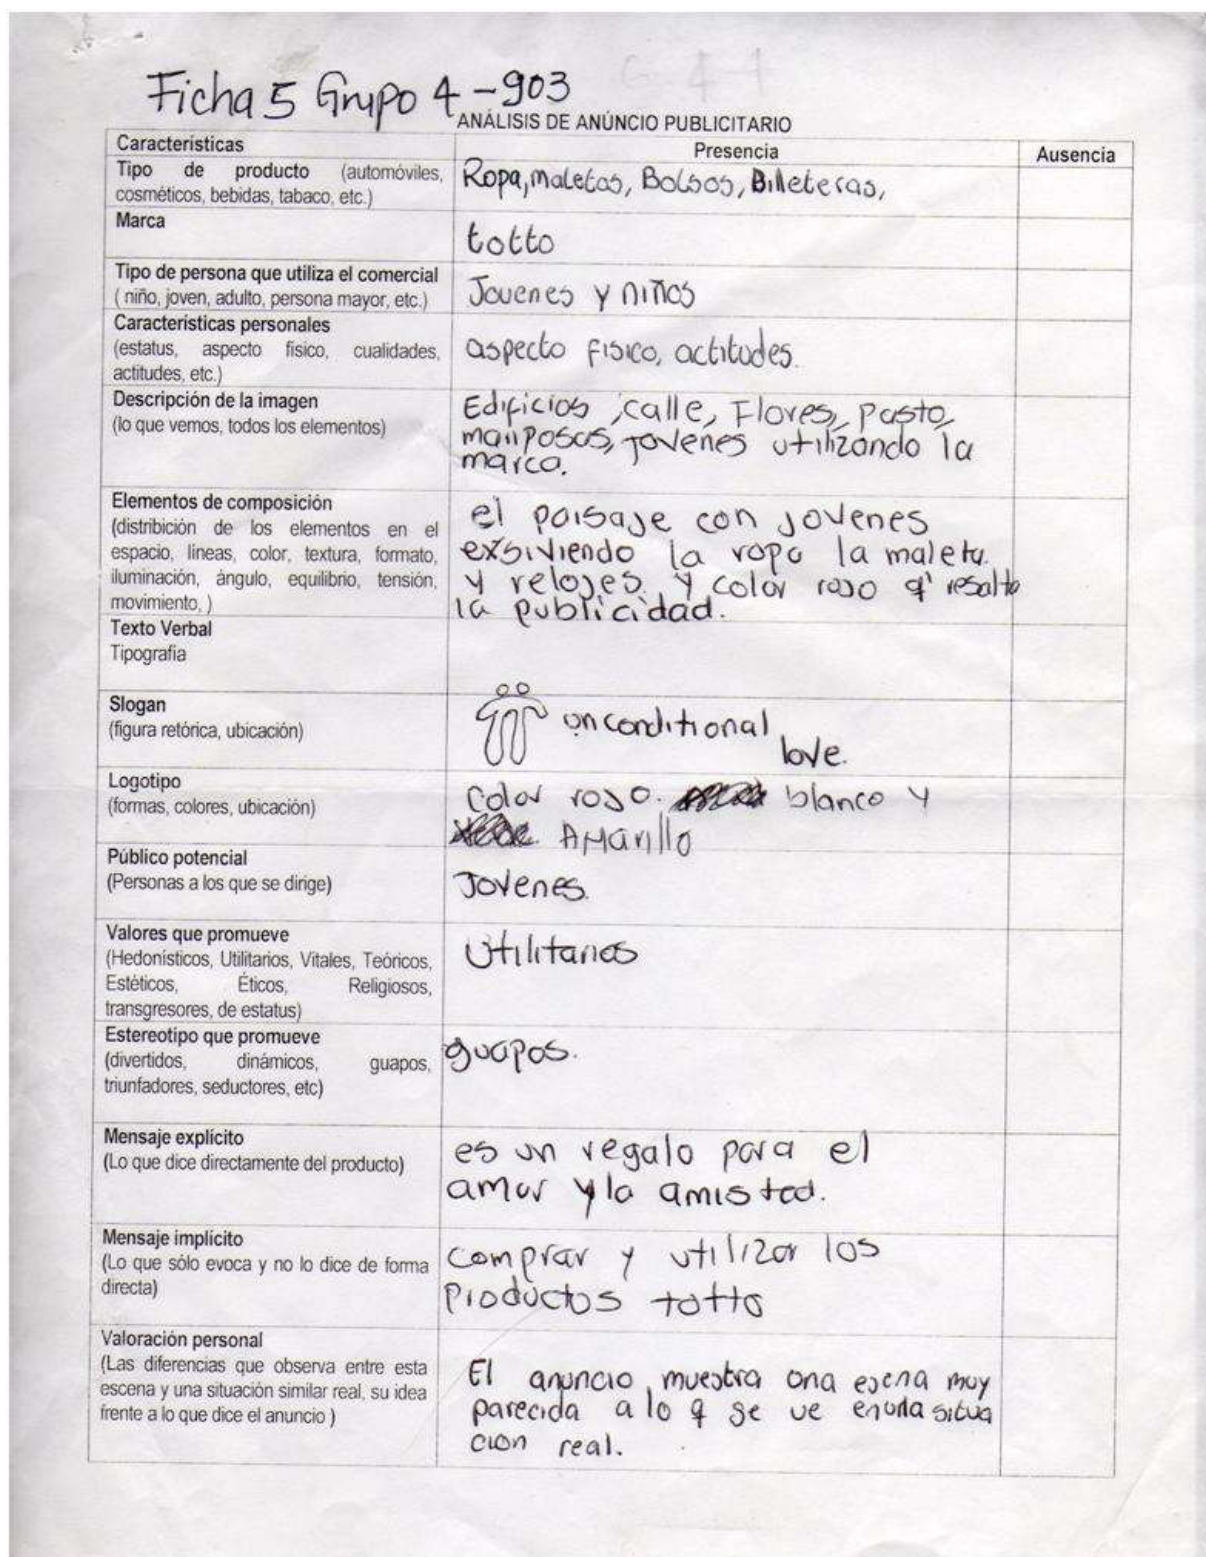 Ficha 5 Grupo 4 - 903
ANÁLISIS DE ANÚNCIO PUBLICITARIO
Características
Presencia
Ausencia
Tipo de producto (automóviles,
cosméticos, bebidas, tabaco, etc.)
Ropa, maletas, Bolsos, Billeteras,
Marca
totto
Tipo de persona que utiliza el comercial
( niño, joven, adulto, persona mayor, etc.)
Jovenes y niños
Características personales
(estatus, aspecto físico, cualidades,
actitudes, etc.)
aspecto fisico, actitudes.
Descripción de la imagen
(lo que vemos, todos los elementos)
Edificios, calle, Flores, Pasto,
mariposas, jovenes utilizando la
marca.
Elementos de composición
(distribición de los elementos en el
espacio, líneas, color, textura, formato,
iluminación, ángulo, equilibrio, tensión,
movimiento, )
el paisaje con jovenes
exsiviendo la ropa la maleta.
y relojes. y color rojo q' resalta
la publicidad.
Texto Verbal
Tipografía
Slogan
(figura retórica, ubicación)
unconditional
love.
Logotipo
(formas, colores, ubicación)
color rojo. blanco y
Amarillo
Público potencial
(Personas a los que se dirige)
Jovenes.
Valores que promueve
(Hedonísticos, Utilitarios, Vitales, Teóricos,
Estéticos, Éticos, Religiosos,
transgresores, de estatus)
Utilitarios
Estereotipo que promueve
(divertidos, dinámicos, guapos,
triunfadores, seductores, etc)
guapos.
Mensaje explícito
(Lo que dice directamente del producto)
es un regalo para el
amor y la amistad.
Mensaje implícito
(Lo que sólo evoca y no lo dice de forma
directa)
comprar y utilizar los
Productos totto
Valoración personal
(Las diferencias que observa entre esta
escena y una situación similar real, su idea
frente a lo que dice el anuncio )
El anuncio, muestra una esena muy
parecida a lo q se ve en una situa
cion real.